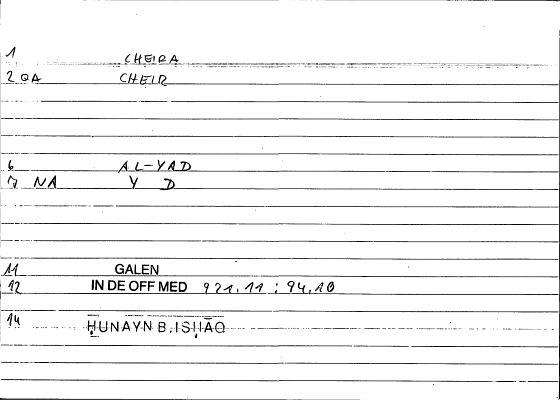 1 CHEIRA
2 QA CHEIR
6 AL-YAD
7 NA Y D
11 GALEN
12 IN DE OFF MED 921,11 ; 94,10
14 ḤUNAYN B. ISḤĀQ